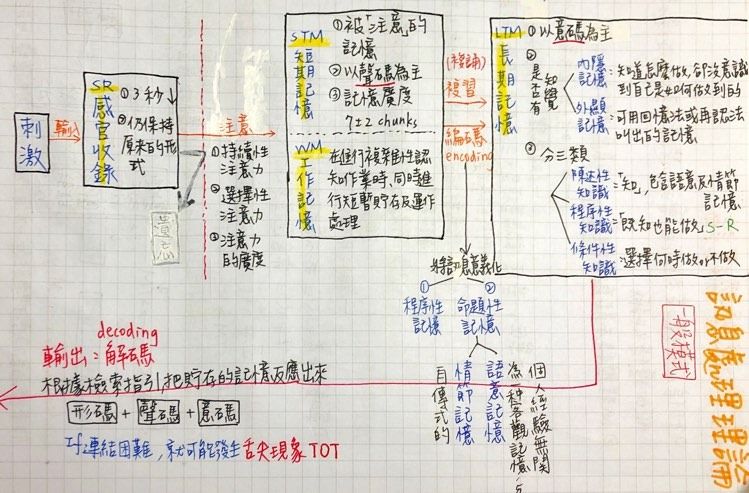 訊息處理理論
一般模式
刺激
輸入
SR
感官收錄
①3秒↓
②仍保持
原來的形
式
遺忘
注意
①持續性
注意力
②選擇性
注意力
③注意力
的廣度
STM
短期記憶
①被「注意」的
記憶
②以聲碼為主
③記憶廣度
7±2 chunks
WM
工作記憶
在進行複雜性認
知作業時、同時進
行短暫貯存及運作
處理
(複誦)
複習
編碼
encoding
將訊息意義化
①
程序性
記憶
②
命題性
記憶
情節記憶
自傳式的
語意記憶
為一種客觀記憶,與
個人經驗無關
LTM
長期記憶
①以意碼為主
②是否有知覺
內隱
記憶
:知道怎麼做,卻沒意識
到自己是如何做到的
外顯
記憶
:可用回憶法或再認法
叫出的記憶
③分三類
陳述性
知識
:「知」,包含語意及情節
記憶
程序性
知識
:「既知也能做」S-R
條件性
知識
:選擇何時做or不做
decoding
輸出:解碼
根據檢索指引,把貯存的記憶反應出來
形碼+聲碼+意碼
If連結困難,就可能發生舌尖現象TOT